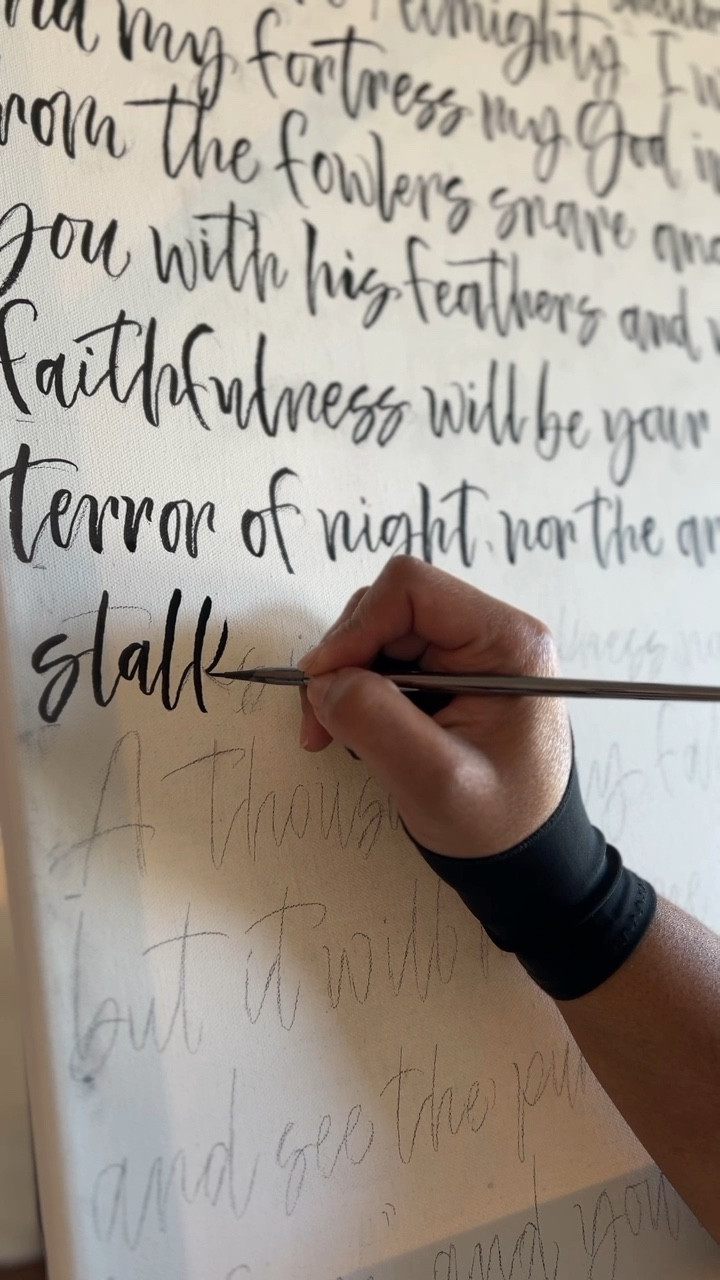 my almighty I
my fortress my God
the fowlers snare and
you with his feathers and
faithfulness will be your
terror of night. nor the
stalk
A
but it will
and see the
and you